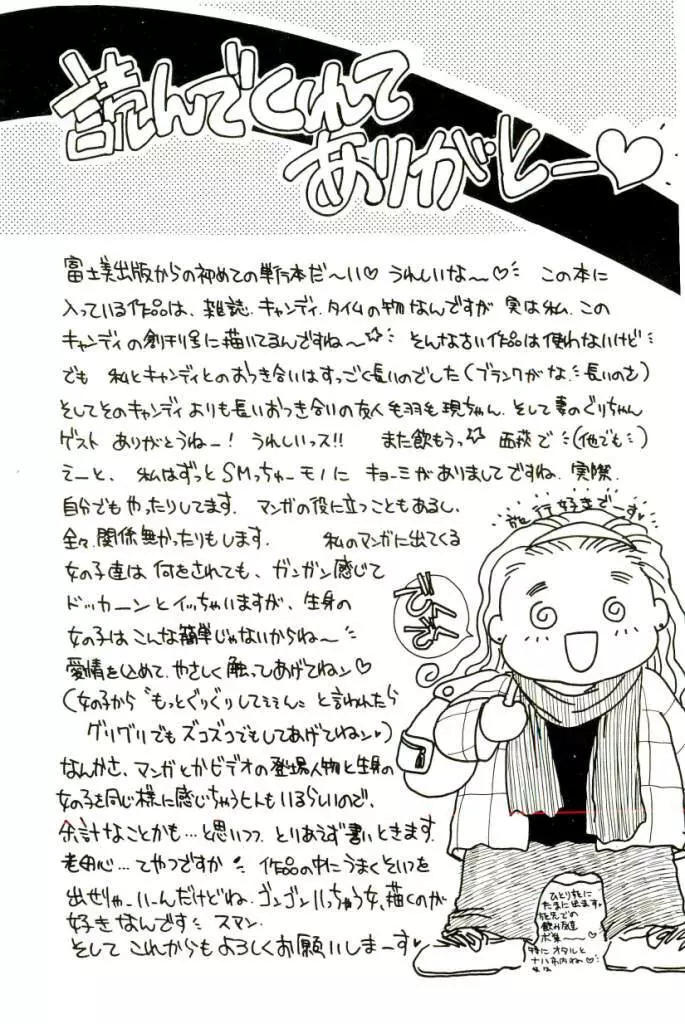 読んでくれて
ありがとー♡
富士美出版からの初めての単行本だ〜い♡ うれしいな〜♡ この本に
入っている作品は、雑誌.キャンディ.タイムの物なんですが 実は私.この
キャンディの創刊号に描いてるんですね〜☆ そんな古い作品は使わないけど
でも 私とキャンディとのおつき合いはすっごく長いのでした(ブランクがな.長いのさ)
そしてそのキャンディよりも長いおつき合いの友人 毛羽毛現ちゃん. そして妻のぐりちゃん
ゲスト ありがとうねー! うれしいっス!! また飲もうっ☆ 西荻で(他でも)
えーと、 私はずっとSMっちゅーモノに キョーミがありましてですね. 実際.
自分でもやったりしてます. マンガの役に立つこともあるし、
全々.関係無かったりもします. 私のマンガに出てくる
女の子達は 何をされても、ガンガン感じて
ドッカーンとイッちゃいますが、生身の
女の子は こんな簡単じゃないからね〜
愛情を込めて.やさしく触ってあげてねン♡
(女の子から〝もっとぐりぐりしてェェん〟と言われたら
グリグリでもズコズコでもしてあげてねン♡)
なんかさ、マンガとかビデオの登場人物と生身の
女の子を同じ様に感じちゃうヒトもいるらしいので、
余計なことかも…と思いつつ とりあえず書いときます.
老田心…てやつですか 作品の中にうまくそいつを
出せりゃーいーんだけどね. ゴンゴンいっちゃう女、描くのが
好きなんです スマン.
そして これからもよろしくお願いしまーす♥
旅行好きでーす♥
ひとり旅に
たまに出ます。
旅先での
飲み友達
ボ集〜〜♡
特に オタルと